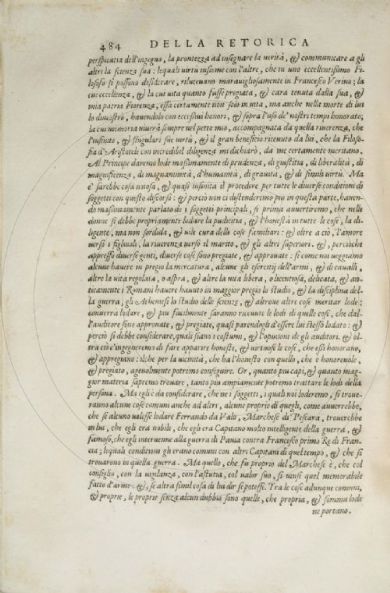 484 DELLA RETORICA
perspicacia dell'ingegno, la prontezza ad insegnare la verità, & communicare a gli
altri la scienza sua: lequali virtù insieme con l'altre, che in uno eccellentissimo Fi-
losofo si possono desiderare, rilucevano maravigliosamente in Francesco Verino; la
cui eccellenza, & la cui vita quanto fusse pregiata, & cara tenuta dalla sua, &
mia patria Fiorenza, essa certamente non solo in vita, ma anche nella morte di lui
lo dimostrò, havendolo con eccessivi honori, & sopra l'uso de' nostri tempi honorato;
la cui memoria viverà sempre nel petto mio, accompagnata da quella riverenza, che
l'infinite, & singulari sue virtù, & il gran beneficio ricevuto da lui, che la Filoso-
fia d'Aristotile con incredibil diligenza mi dichiarò, da me certamente meritano.
Al Principe daremo lode massimamente di prudenza, di giustitia, di liberalità, di
magnificenza, di magnanimità, d'humanità, di gravità, & di simili virtù. Ma
e' sarebbe cosa noiosa, & quasi infinita il procedere per tutte le diverse conditioni di
soggetti con questo discorso: & perciò non ci distenderemo più in questa parte, haven-
do massimamente parlato de i soggetti principali, se prima avvertiremo, che nelle
donne si debbe propriamente lodare la pudicitia, & l'honestà in tutte le cose, la di-
ligente, ma non sordida, & vile cura delle cose familiari: & oltre a ciò, l'amore
verso i figliuoli, la riverenza verso il marito, & gli altri superiori. &, perciòche
appresso diverse genti, diverse cose sono pregiate, & approvate: si come noi veggiamo
alcune havere in pregio la mercatura, alcune gli esercitij dell'armi, & di cavalli,
altre la vita regolata, & aspra, & altre la vita libera, & licentiosa, delicata, & an-
ticamente i Romani havere havuto in maggior pregio lo studio, & la disciplina del-
la guerra, gli Atheniesi lo studio delle scienze, & altrove altre cose meritar lode;
converrà lodare, & più facilmente saranno ricevute le lodi di quelle cose, che dal-
l'auditore sono approvate, & pregiate, quasi parendogli d'essere lui stesso lodato: &
perciò si debbe considerare, quali siano i costumi, & l'opinioni de gli auditori. & ol-
tra ciò ingegnarsi di fare apparere honeste, & virtuose le cose, che essi honorano,
& apprezzano: il che per la vicinità, che ha l'honesto con quello, che è honorevole,
& pregiato, agevolmente potremo conseguire. Or, quanto più capi, & quanto mag-
gior materia sapremo trovare, tanto più ampiamente potremo trattare le lodi della
persona. Ma egli è da considerare, che ne i soggetti, i quali noi loderemo, si trove-
ranno alcune cose comuni anche ad altri, alcune proprie di quegli, come avverrebbe,
che se alcuno volesse lodare Ferrando da Valo, Marchese di Pescara, troverebbe
in lui, che egli era nobile, che egli era Capitano molto intelligente della guerra, &
famoso, che egli intervenne alla guerra di Pavia contra Francesco primo Re di Fran-
cia; lequali conditioni gli erano comuni con altri Capitani di quel tempo, & che si
trovarono in quella guerra. Ma quello, che fu proprio del Marchese è, che col
consiglio, con la vigilanza, con l'astutia, col valor suo, si vinse quel memorabile
fatto d'arme. &, se altra simil cosa di lui dir si potesse. Tra le cose adunque comuni,
& proprie, le proprie senza alcun dubbio sono quelle, che propria, & somma lode
ne portano.